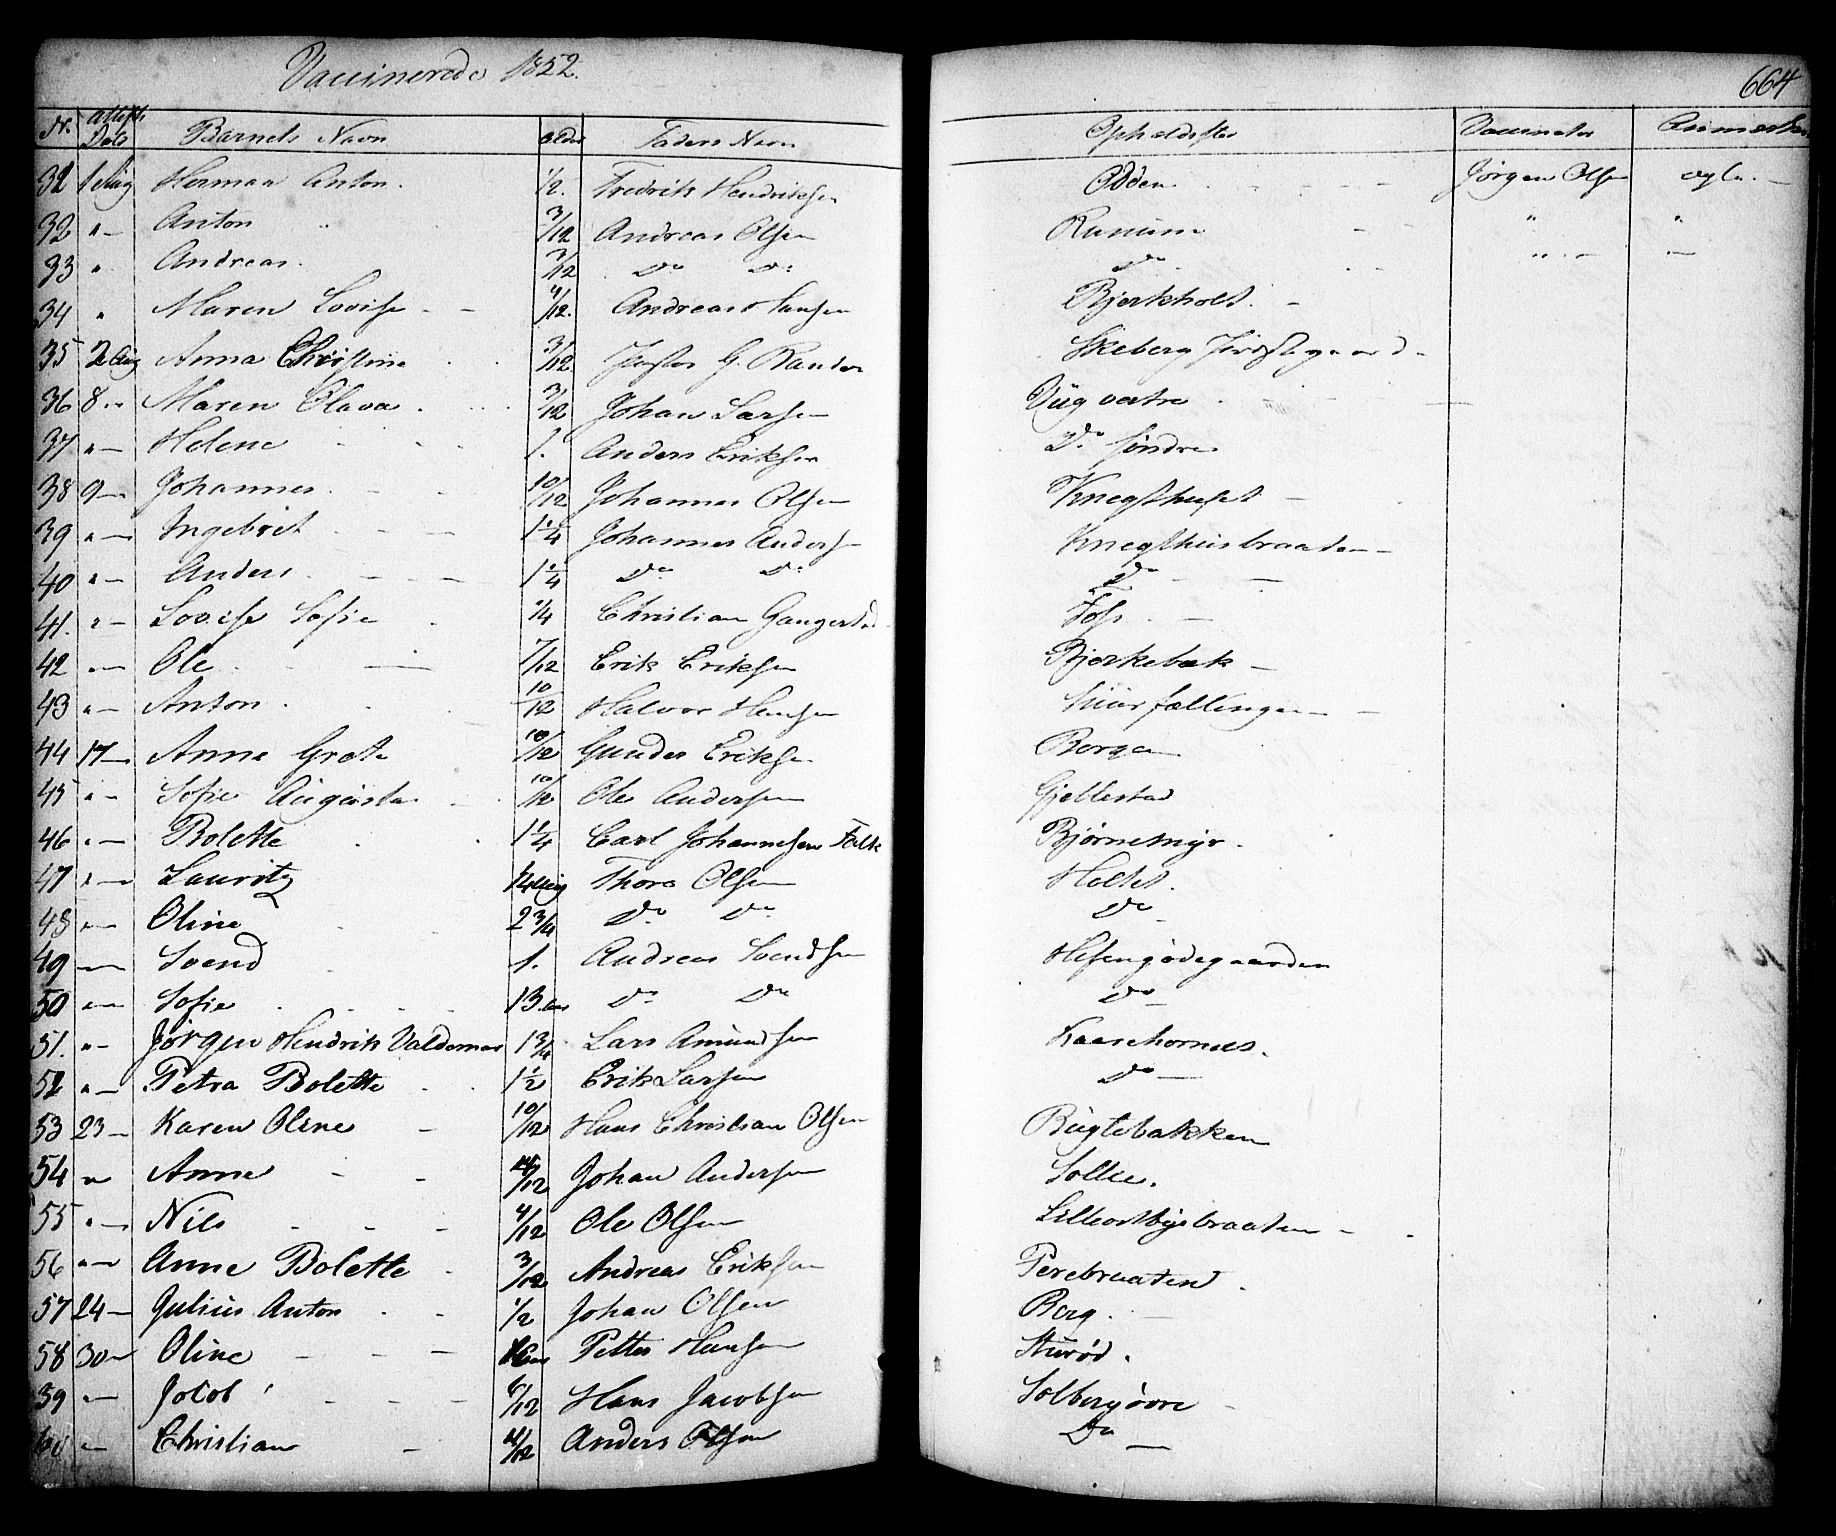 Vaccinerede 1852.
664
N. Attest Dato Barnets Navn alder Faders Navn Opholdsster Vaccinator Anmærkn
32 1 Aug Herman Anton. 1/2. Fredrik Hendriksen Odden Jørgen Olsen ægte.
32 " Anton 3/12 Andreas Olsen " "
33 " Andreas. 3/12 Do Do Do " "
34 " Maren Lovise 4/12. Andreas Hansen Bjerkholt.
35 2 Aug Anna Christine 3/12 G. Rander Skeberg
36 8 " Maren Olava. 3/12 Johan Larsen vestre
37 " Helene 1. Anders Eriksen Do søndre
38 9 Johannes. 10/12 Johannes Olsen Knegthuset
39 " Ingebret 1 1/4 Johannes Anders Knegthusbraaten
40 " Anders 1 1/4 Do Do Do
41. " Lovise Sofie 1/4 Christian Gangestad Foss
42 " Ole 7/12 Erik Eriksen Bjerkebæk
43 " Anton. 10/12 Halvor Hansen
44 17 Anne Grete 10/12 Gunder Eriksen Borge
45 " Sofie Augusta 10/12 Ole Andersen Gjellestad
46 " Bolette 1 1/4 Carl Johannesen Falk Bjørnemyr.
47 " Lauritz Thore Olsen Holtet.
48 " Oline 2 3/4 Do Do Do
49 Svend 1. Andreas Svendsen
50 " Sofie 13 aar Do Do Do
51. " Jørgen Hendrik Valdemar 1 3/4 Lars Amundsen Kaarehornet.
52 " Petra Bolette 1 1/2 Erik Larsen Do
53 23 Karen Oline 10/12 Hans Christian Olsen Bugtebakken
54 " Anne /12 Johan Andersen Solli.
55 " Nils 4/12 Ole Olsen Lilleostbyebraaten
56 " Anne Bolette 3/12 Andreas Eriksen Perebraaten.
57 24 Julius Anton 1/2 Johan Olsen Berg.
58 30 Oline Petter Hansen Sturød.
59 " Jocob 6/12 Hans Jacobsen Solberg øvre
60 " Christian /12 Anders Olsen Do